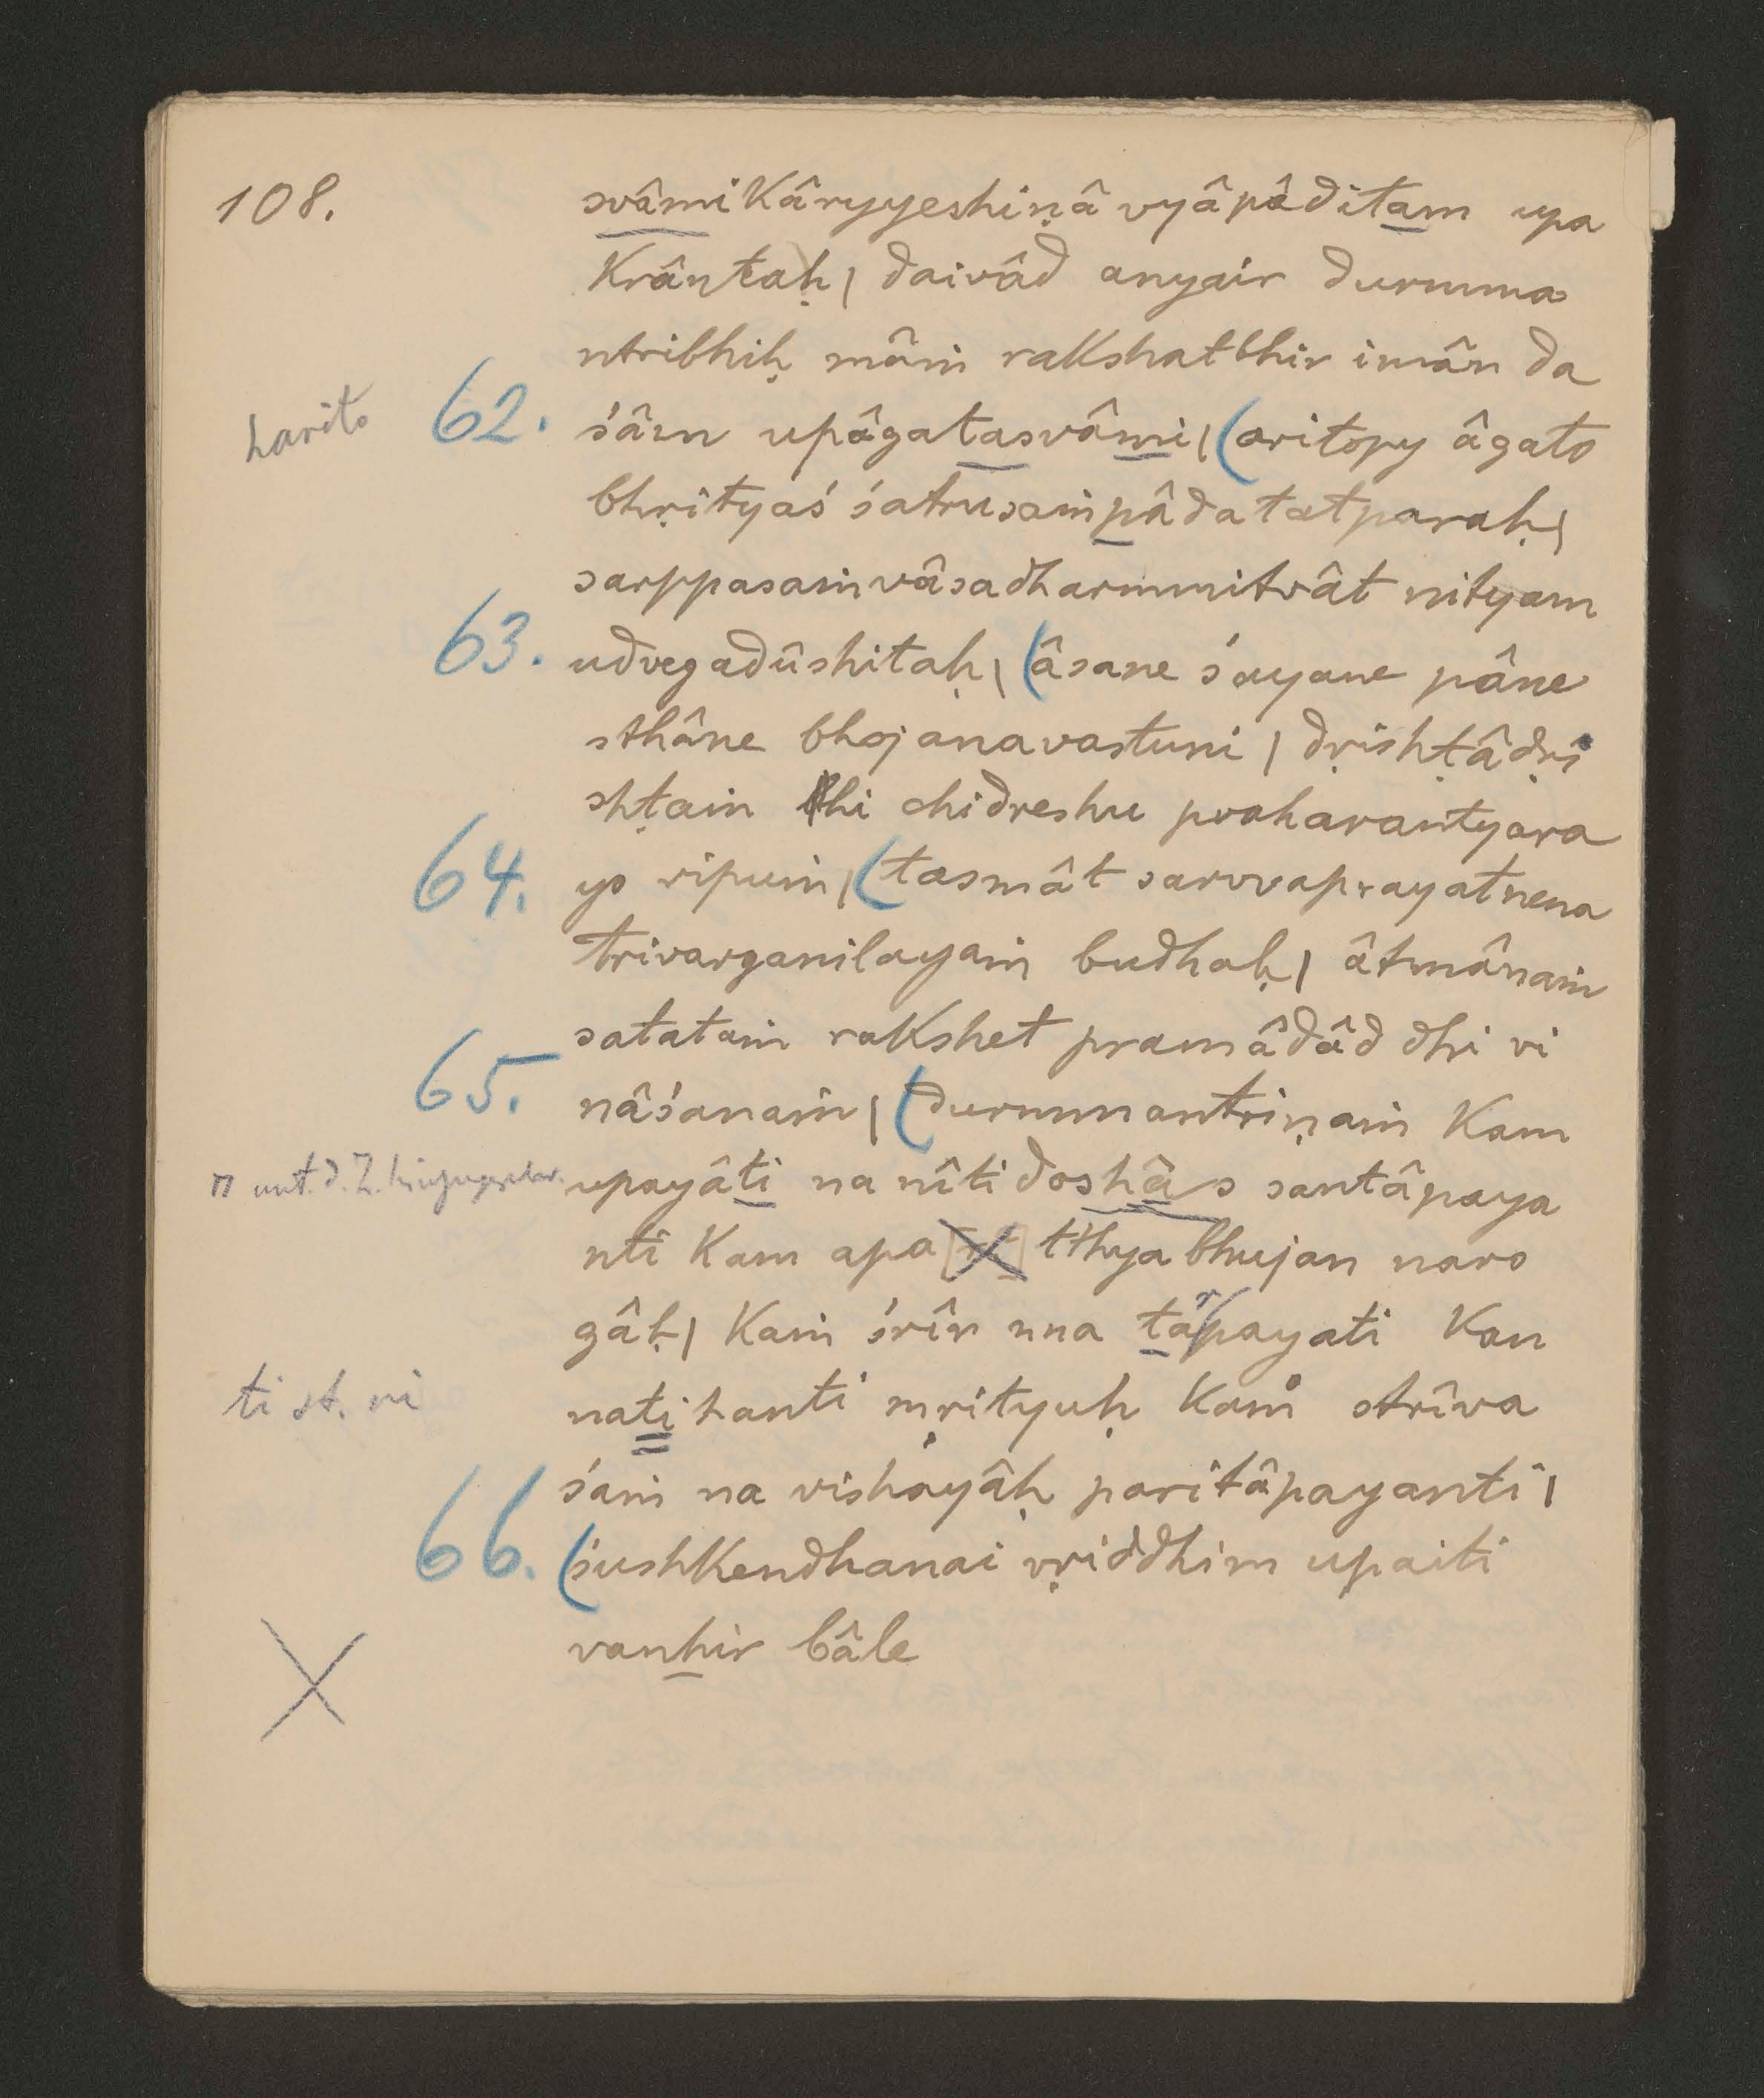 108.
svâmikâryyeshiṇâ vyâpâditam upa
krântaḥ| daivâd anyair durmma
ntribhiḥ mâṁ rakshatbhir imân da
harito 62. śâm upâgatasvâmi| (aritopy âgato
bhṛityaś śatrusaṁpâdatatparaḥ|
sarppasaṁvâsadharmmitvât nityam
63. udvegadûshitaḥ| (âsane śayane pâne
sthâne bhojanavastuni| dṛishṭâdṛi
shṭaṁ hi chidreshu praharantyara
64. yo ripuṁ| (tasmât sarvvaprayatnena
trivarganilayaṁ budhaḥ| âtmânaṁ
satataṁ rakshet pramâdâd dhi vi
65. nâśanaṁ| (durmmantriṇaṁ kam
n unt. d. Z. upayâti na nîtidoshâs santâpaya
nti kam apa tthyabhujan naro
gâḥ| kaṁ śrîr nna târpayati kan
ti st. ni natihanti mṛityuḥ kaṁ strîva
śaṁ na vishayâḥ paritâpayanti|
66. (śushkendhanai vṛiddhim upaiti
vanhir bâle